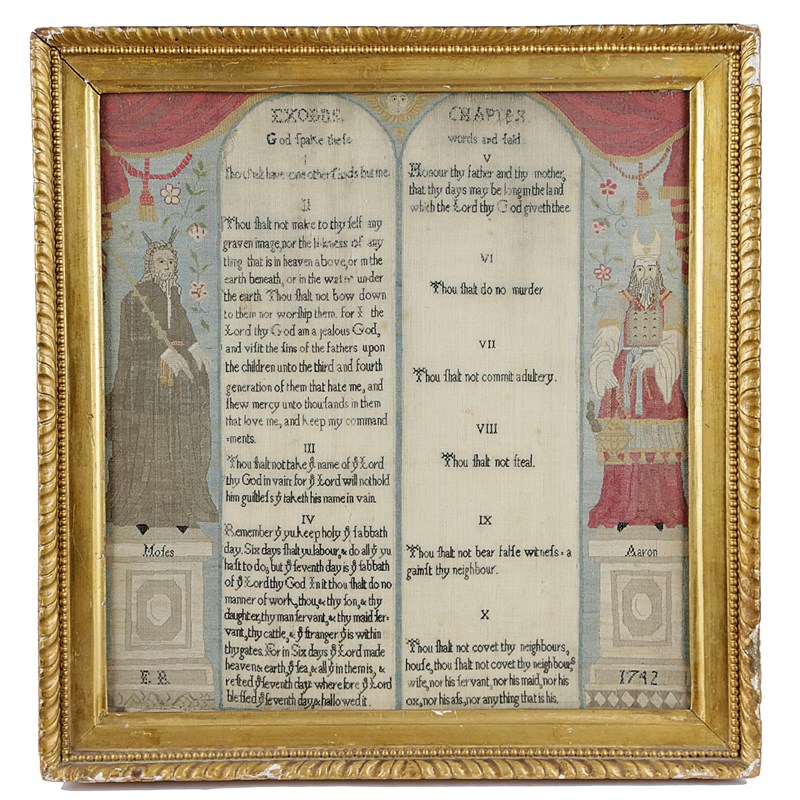 EXODUS,
God ſpake theſe
I
Thou ſhalt have none other Gods but me.
II
Thou ſhalt not make to thy ſelf any
graven image, nor the likneſs of any
thing that is in heaven above, or in the
earth beneath, or in the water under
the earth. Thou ſhalt not bow down
to them nor worſhip them. for I the
Lord thy God am a jealous God,
and viſit the ſins of the fathers upon
the children unto the third and fourth
generation of them that hate me, and
ſhew mercy unto thouſands in them
that love me, and keep my command
=ments.
III
Thou ſhalt not take yͤ name of yͤ Lord
thy God in vain: for yͤ Lord will not hold
him guiltleſs yͭ taketh his name in vain.
IV
Remember yͭ yu keep holy yͤ ſabbath
day. Six days ſhalt yu labour, & do all yͭ yu
haſt to do, but yͤ ſeventh day is yͤ ſabbath
of yͤ Lord thy God In it thou ſhalt do no
manner of work, thou, & thy ſon, & thy
daughter, thy man ſervant, & thy maid ſer-
vant, thy cattle, & yͤ ſtranger yͭ is within
thy gates. For in Six days yͤ Lord made
heaven & earth, yͤ ſea, & all yͭ in them is, &
reſted yͤ ſeventh day: wherefore yͤ Lord
bleſſed yͤ ſeventh day, & hallowed it.
CHAPTER
words and ſaid:
V
Honour thy father and thy mother,
that thy days may be long in the land
which the Lord thy God giveth thee.
VI
Thou ſhalt do no murder
VII
Thou ſhalt not commit adultery.
VIII
Thou ſhalt not ſteal.
IX
Thou ſhalt not bear falſe witneſs = a
gainſt thy neighbour.
X
Thou ſhalt not covet thy neighbours,
houſe, thou ſhalt not covet thy neighbours
wife, nor his ſervant, nor his maid, nor his
ox, nor his aſs, nor any thing that is his.
Moſes
E B
Aaron
1742